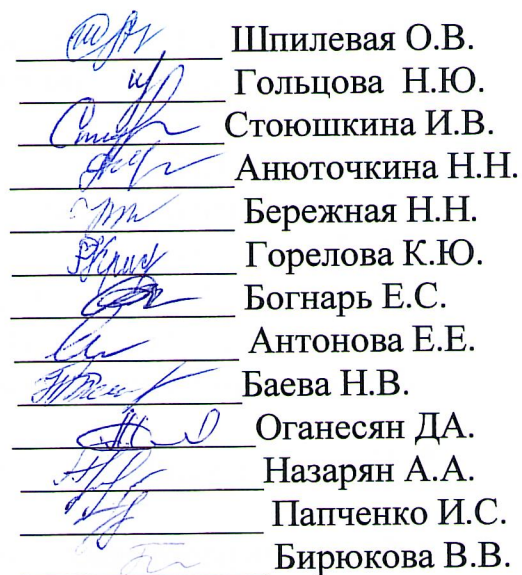 Шпилевая О.В.
Гольцова Н.Ю.
Стоюшкина И.В.
Анюточкина Н.Н.
Бережная Н.Н.
Горелова К.Ю.
Богнарь Е.С.
Антонова Е.Е.
Баева Н.В.
Оганесян ДА.
Назарян А.А.
Папченко И.С.
Бирюкова В.В.